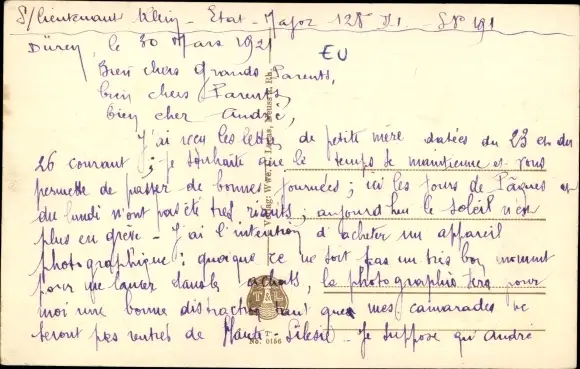 S/lieutenant Klein - Etat-Major 128 D.I. - SP 191
Düren, le 30 Mars 1921
EU
Bien chers Grands Parents,
bien chers Parents,
bien cher André,
J'ai reçu les lettres de petite mère datées du 23 et du
26 courant ; je souhaite que le temps se maintienne et vous
permette de passer de bonnes journées ; ici les jours de Pâques et
du lundi n'ont pas été très riants ; aujourd'hui le soleil n'est
plus en grève - J'ai l'intention d'acheter un appareil
photographique : quoique ce ne soit pas un très bon moment
pour me lancer dans les achats, la photographie sera pour
moi une bonne distraction tant que mes camarades ne
seront pas rentrés de Haute-Silésie - Je suppose qu'André
Verlag: Wwe. Lucas, Rh.
T&L
No. 0156